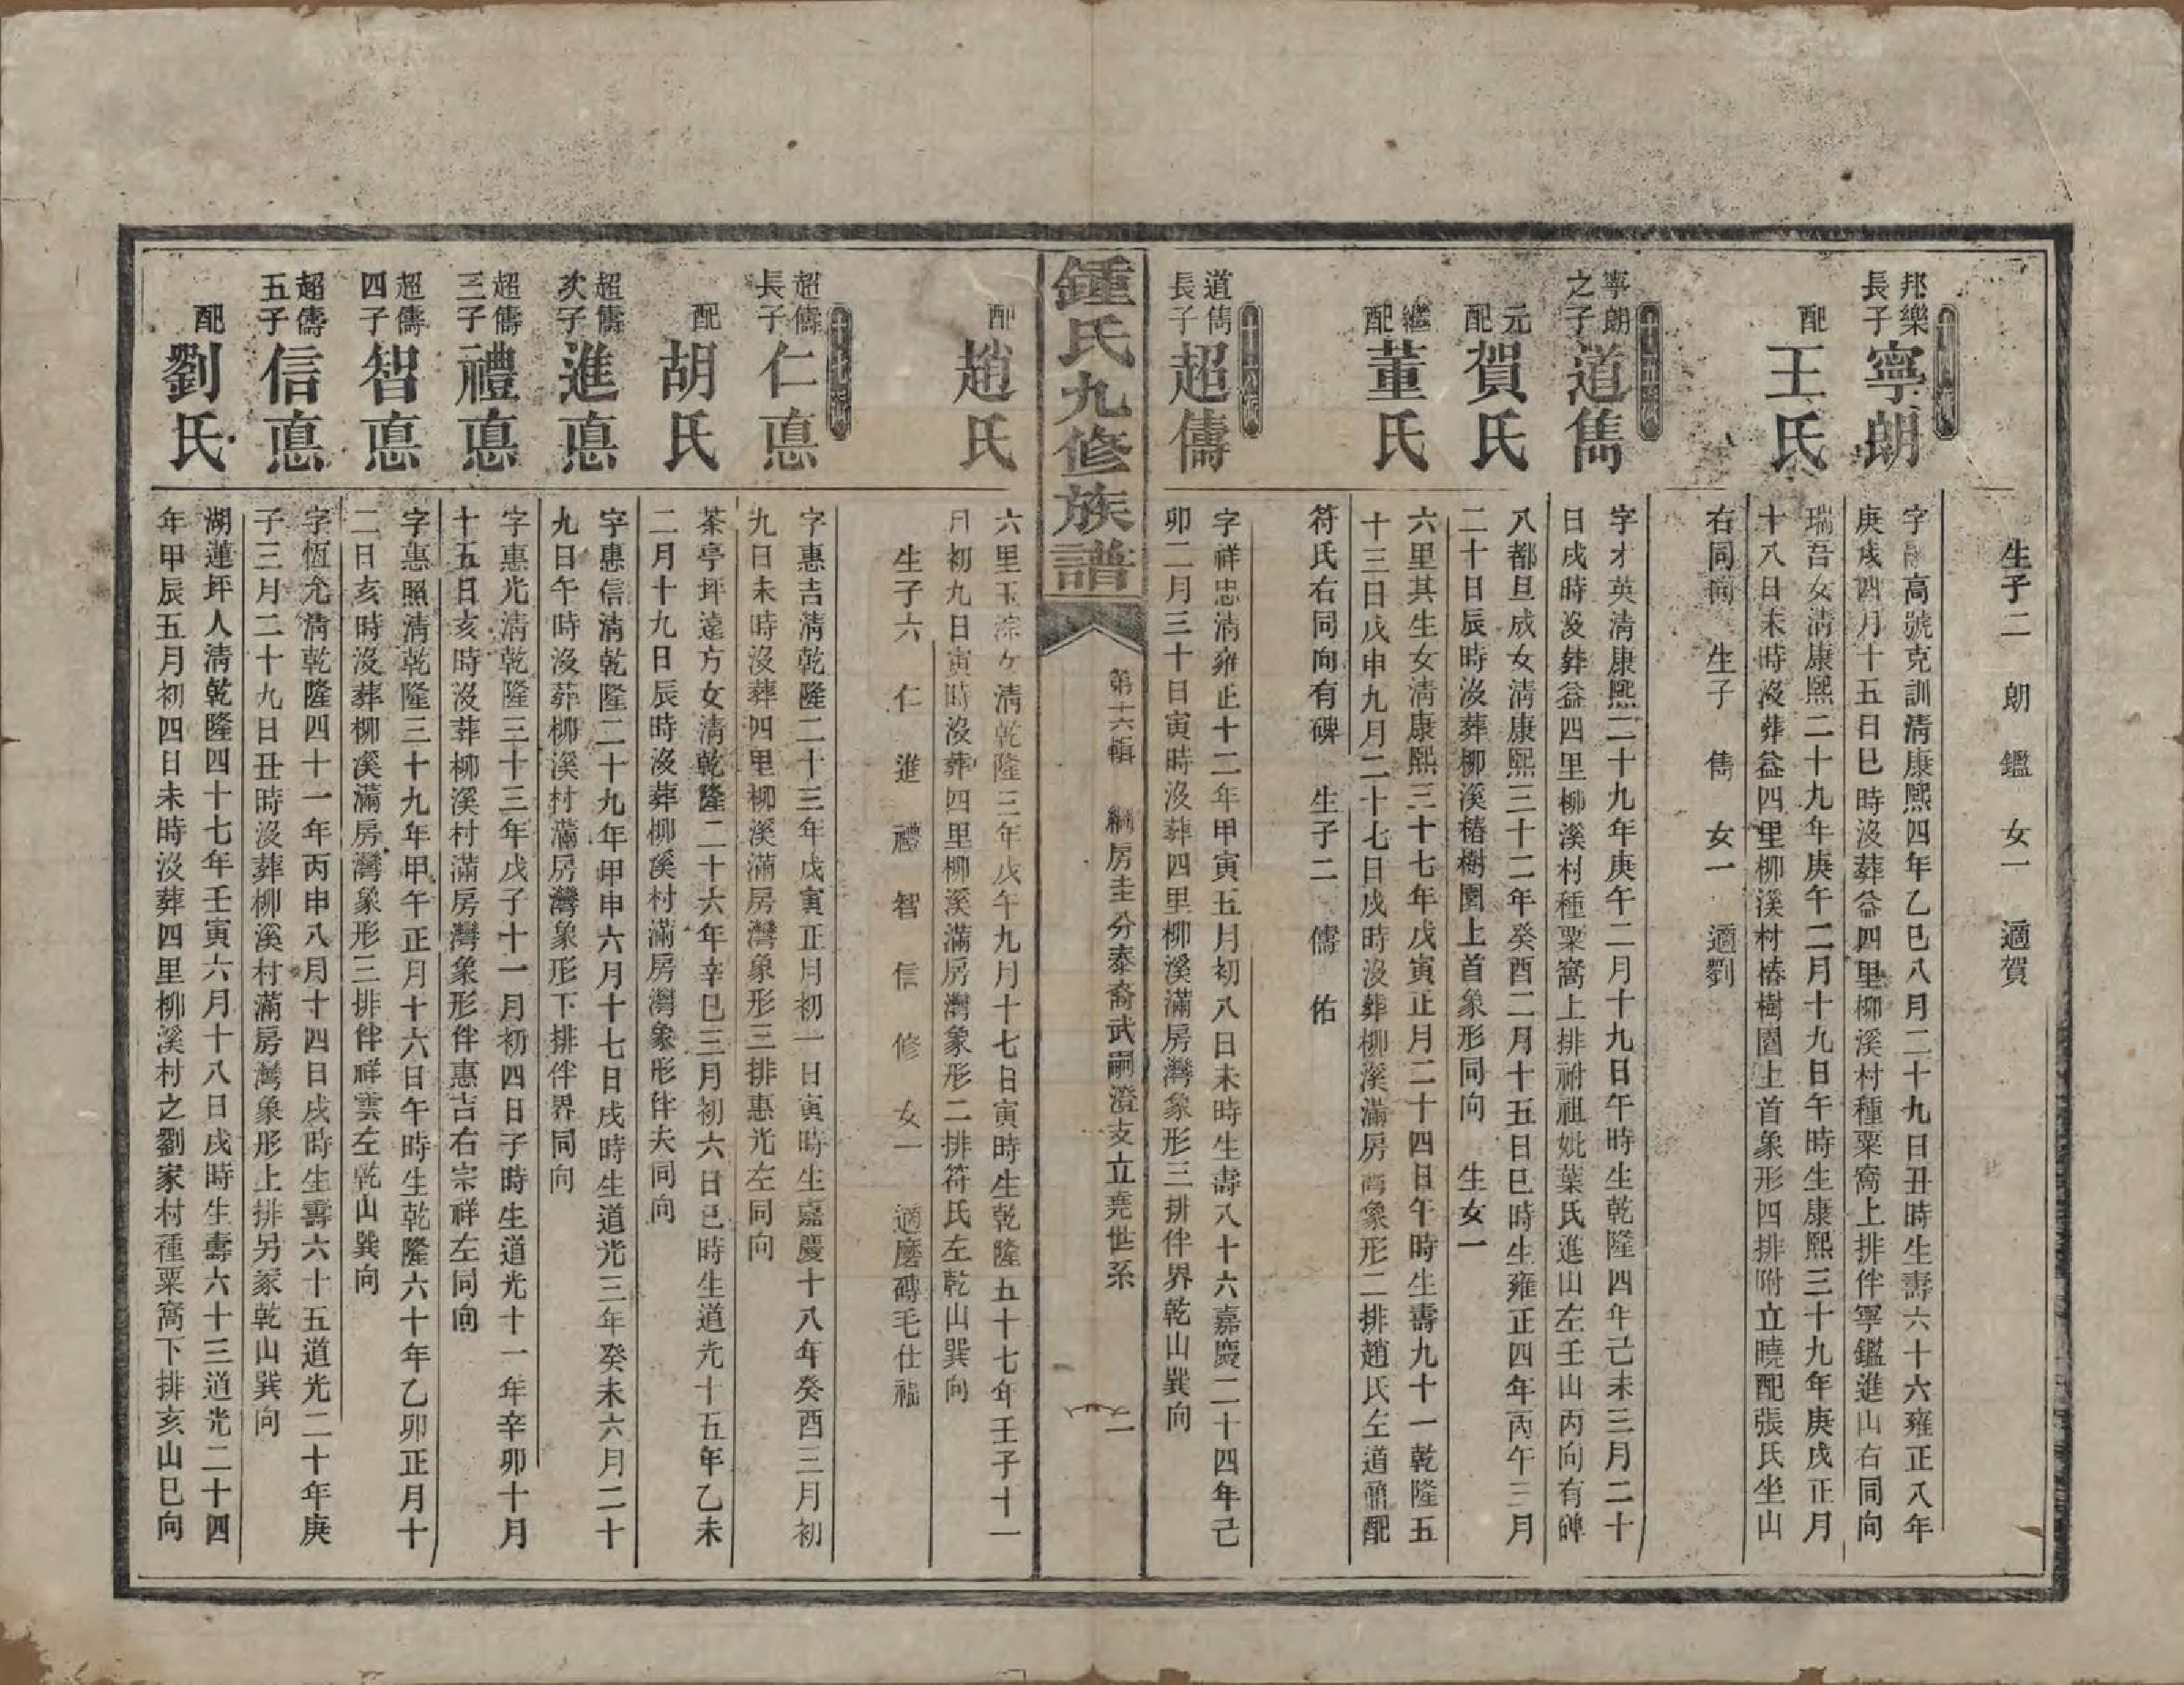 生子二 朗 鑑 女一 適賀
十四派
邦樂長子 寧朗
字 高號克訓清康熙四年乙巳八月二十九日丑時生壽六十六雍正八年
庚戌四月十五日巳時沒葬益四里柳溪村種粟窩上排伴寧鑑進山右同向
配 王氏
瑞吾女清康熙二十九年庚午二月十九日午時生康熙三十九年庚戌正月
十八日未時沒葬益四里柳溪村椿樹園上首象形四排附立曉配張氏坐山
右同向 生子 儁 女一 適劉
十五派
寧朗之子 道儁
字才英清康熙二十九年庚午二月十九日午時生乾隆四年己未三月二十
日戌時沒葬益四里柳溪村種粟窩上排祔祖妣葉氏進山左壬山丙向有碑
元配 賀氏
八都旦成女清康熙三十二年癸酉二月十五日巳時生雍正四年丙午三月
二十日辰時沒葬柳溪椿樹園上首象形同向 生女一
繼配 董氏
六里其生女清康熙三十七年戊寅正月二十四日午時生壽九十一乾隆五
十三日戊申九月二十七日戌時沒葬柳溪滿房灣象形二排趙氏左道鼐配
符氏右同向有碑 生子二 儔 佑
十六派
道儁長子 超儔
字祥忠清雍正十二年甲寅五月初八日未時生壽八十六嘉慶二十四年己
卯二月三十日寅時沒葬四里柳溪滿房灣象形三排伴界乾山巽向
鍾氏九修族譜
第十六輯 綱房圭分泰裔武嗣澄支立堯世系
二
配 趙氏
六里玉 清乾隆三年戊午九月十七日寅時生乾隆五十七年壬子十一
月初九日寅時沒葬四里柳溪滿房灣象形二排符氏左乾山巽向
生子六 仁 進 禮 智 信 修 女一 適磨磚毛仕福
十七派
超儔長子 仁憓
字惠吉清乾隆二十三年戊寅正月初一日寅時生嘉慶十八年癸酉三月初
九日未時沒葬四里柳溪滿房灣象形三排惠光左同向
配 胡氏
茶亭坪遠方女清乾隆二十六年辛巳三月初六日巳時生道光十五年乙未
二月十九日辰時沒葬柳溪村滿房灣象形伴夫同向
超儔次子 進憓
字惠信清乾隆二十九年甲申六月十七日戌時生道光三年癸未六月二十
九日午時沒葬柳溪村滿房灣象形下排伴界同向
超儔三子 禮憓
字惠光清乾隆三十三年戊子十一月初四日子時生道光十一年辛卯十月
十五日亥時沒葬柳溪村滿房灣象形伴惠吉右宗祥左同向
超儔四子 智憓
字惠照清乾隆三十九年甲午正月十六日午時生乾隆六十年乙卯正月十
二日亥時沒葬柳溪滿房灣象形三排伴祥雲左乾山巽向
超儔五子 信憓
字恆允清乾隆四十一年丙申八月十四日戌時生壽六十五道光二十年庚
子三月二十九日丑時沒葬柳溪村滿房灣象形上排另冢乾山巽向
配 劉氏
湖蓮坪人清乾隆四十七年壬寅六月十八日戌時生壽六十三道光二十四
年甲辰五月初四日未時沒葬四里柳溪村之劉家村種粟窩下排亥山巳向